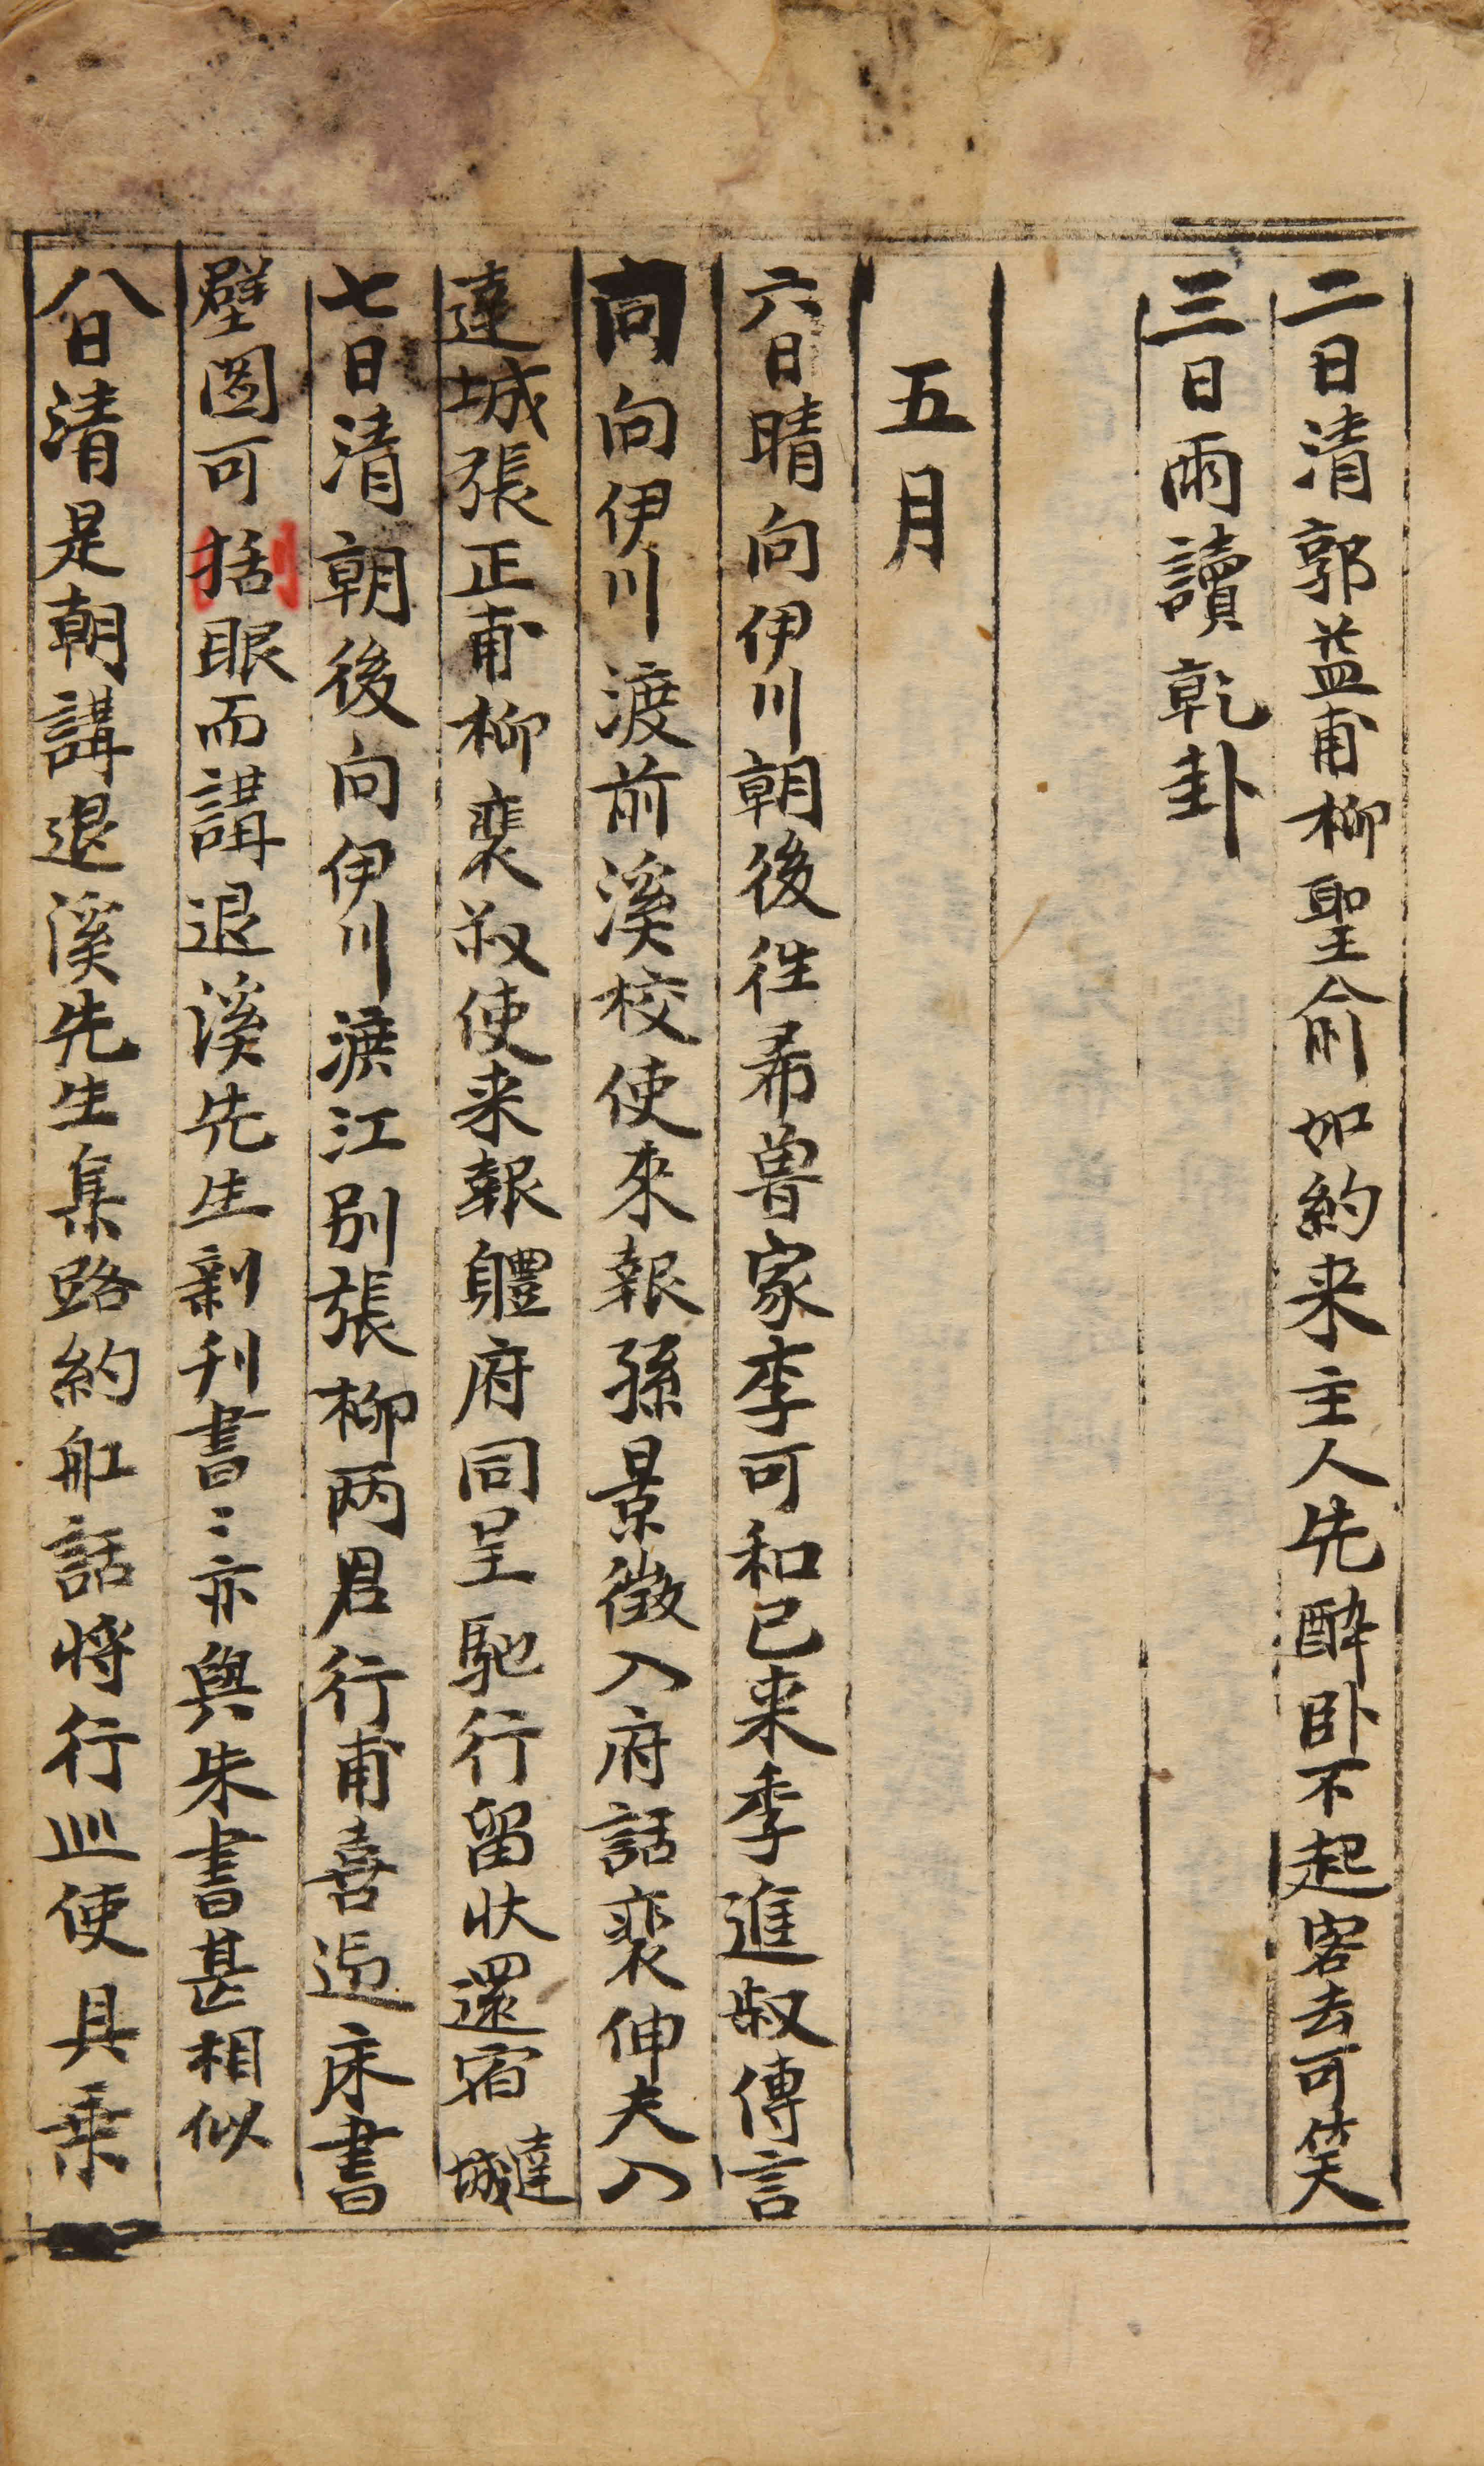 二日清郭益甫柳聖俞如約来主人先醉卧不起客去可笑
三日雨讀乾卦
五月
六日晴向伊川朝後徃希曽家李可和已来季進叔傳言
同向伊川渡前溪校使來報孫景徵入府話裵伸夫入
達城張正甫柳裵叔使来報軆府同呈馳行留状還宿達城
七日清朝後向伊川淚江別張柳两君行甫喜過床書
壁圖可括眼而講退溪先生新刊書〻亦與朱書甚相似
八日清是朝講退溪先生集路約舡話将行巡使具乗